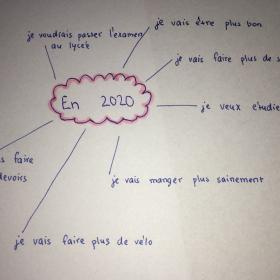 je vais être plus bon
je voudrais passer l'examen
au lycée
je vais faire plus de
En 2020
je veux
faire
devoirs
je vais manger plus sainement
je vais faire plus de vélo